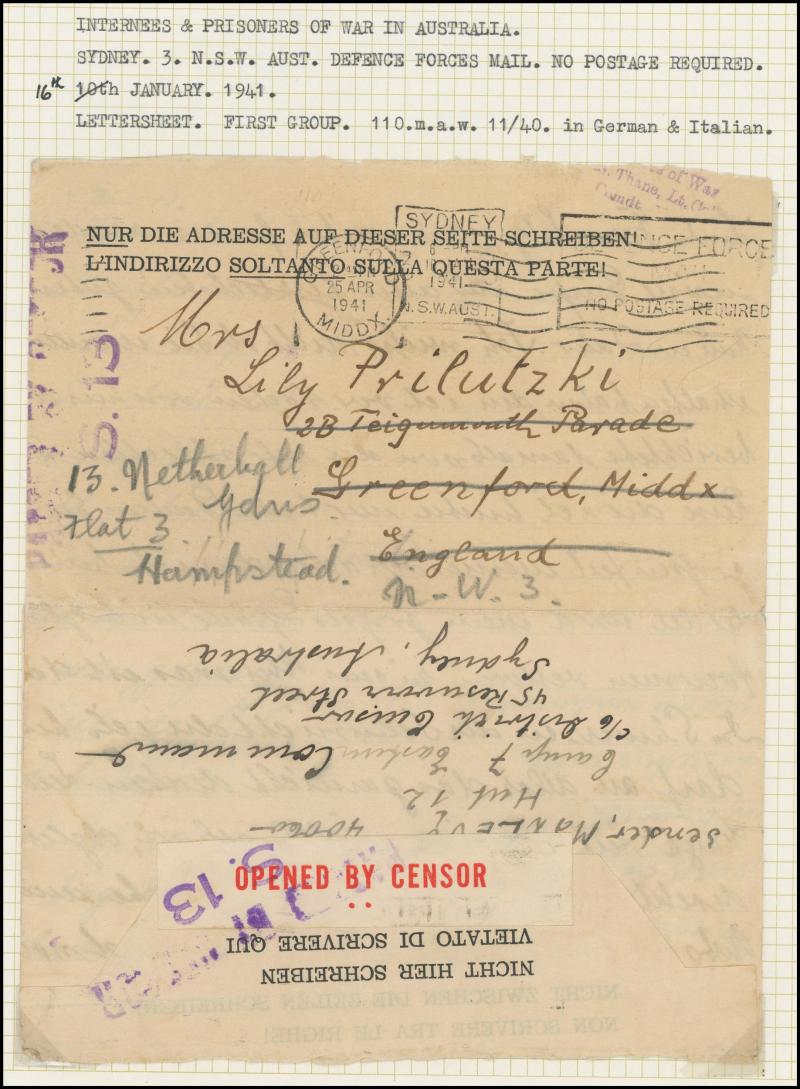 INTERNEES & PRISONERS OF WAR IN AUSTRALIA.
SYDNEY. 3. N.S.W. AUST. DEFENCE FORCES MAIL. NO POSTAGE REQUIRED.
16th 10th JANUARY. 1941.
LETTERSHEET. FIRST GROUP. 110.m.a.w. 11/40. in German & Italian.
of War
Thane, Lt. Col.
Comdt
NUR DIE ADRESSE AUF DIESER SEITE SCHREIBEN!
L'INDIRIZZO SOLTANTO SULLA QUESTA PARTE!
SYDNEY
1941
N.S.W. AUST.
FORCE
NO POSTAGE REQUIRED
GREENFORD
25 APR
1941
MIDDX.
S. 13
Mrs
Lily Prilutzki
2B Teignmouth Parade
Greenford, Middx
England
13. Netherhall
Gdns.
Flat 3
Hampstead.
N.W. 3.
Sender, Max LEVY 40060
Hut 12
Camp 7 Eastern Command
c/o District Censor
45 Reservoir Street
Sydney, Australia
OPENED BY CENSOR
S. 13
NICHT HIER SCHREIBEN
VIETATO DI SCRIVERE QUI
NICHT ZWISCHEN DIE ZEILEN SCHREIBEN
NON SCRIVERE TRA LE RIGHE!